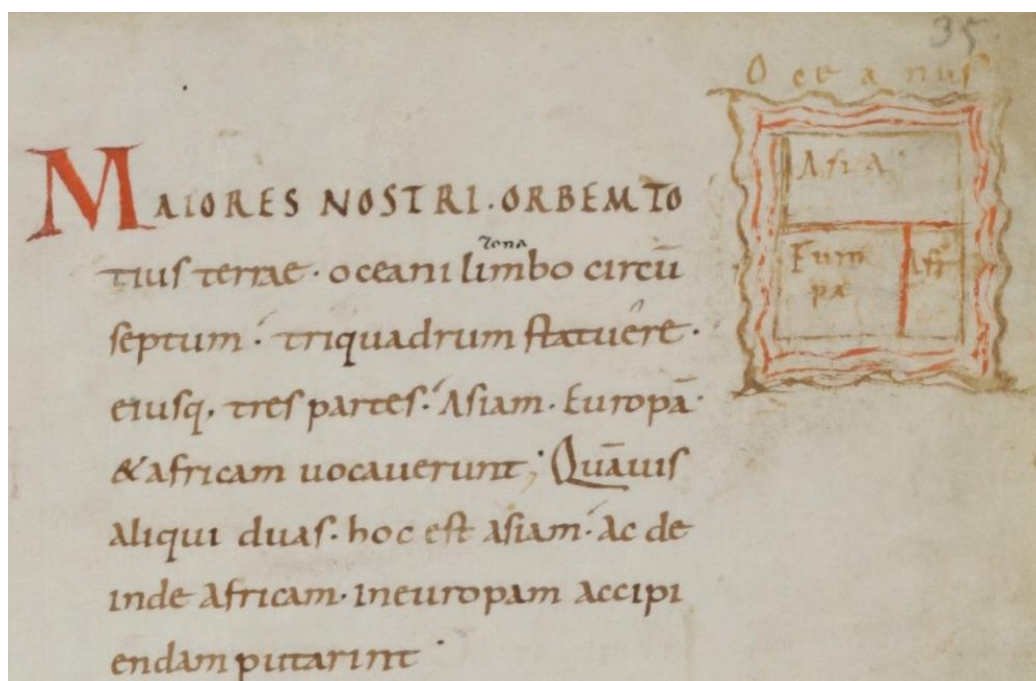 35
Oceanus
Asia
Europa
Afr
MAIORES NOSTRI. ORBEM TO
zona
tius terrae. oceani limbo circū
septum. triquadrum statuere.
eiusq, tres partes. Asiam. Europā.
& africam uocauerunt; Quāuis
aliqui duas. hoc est asiam. Ac de
inde Africam. ineuropam accipi
endam putarint.